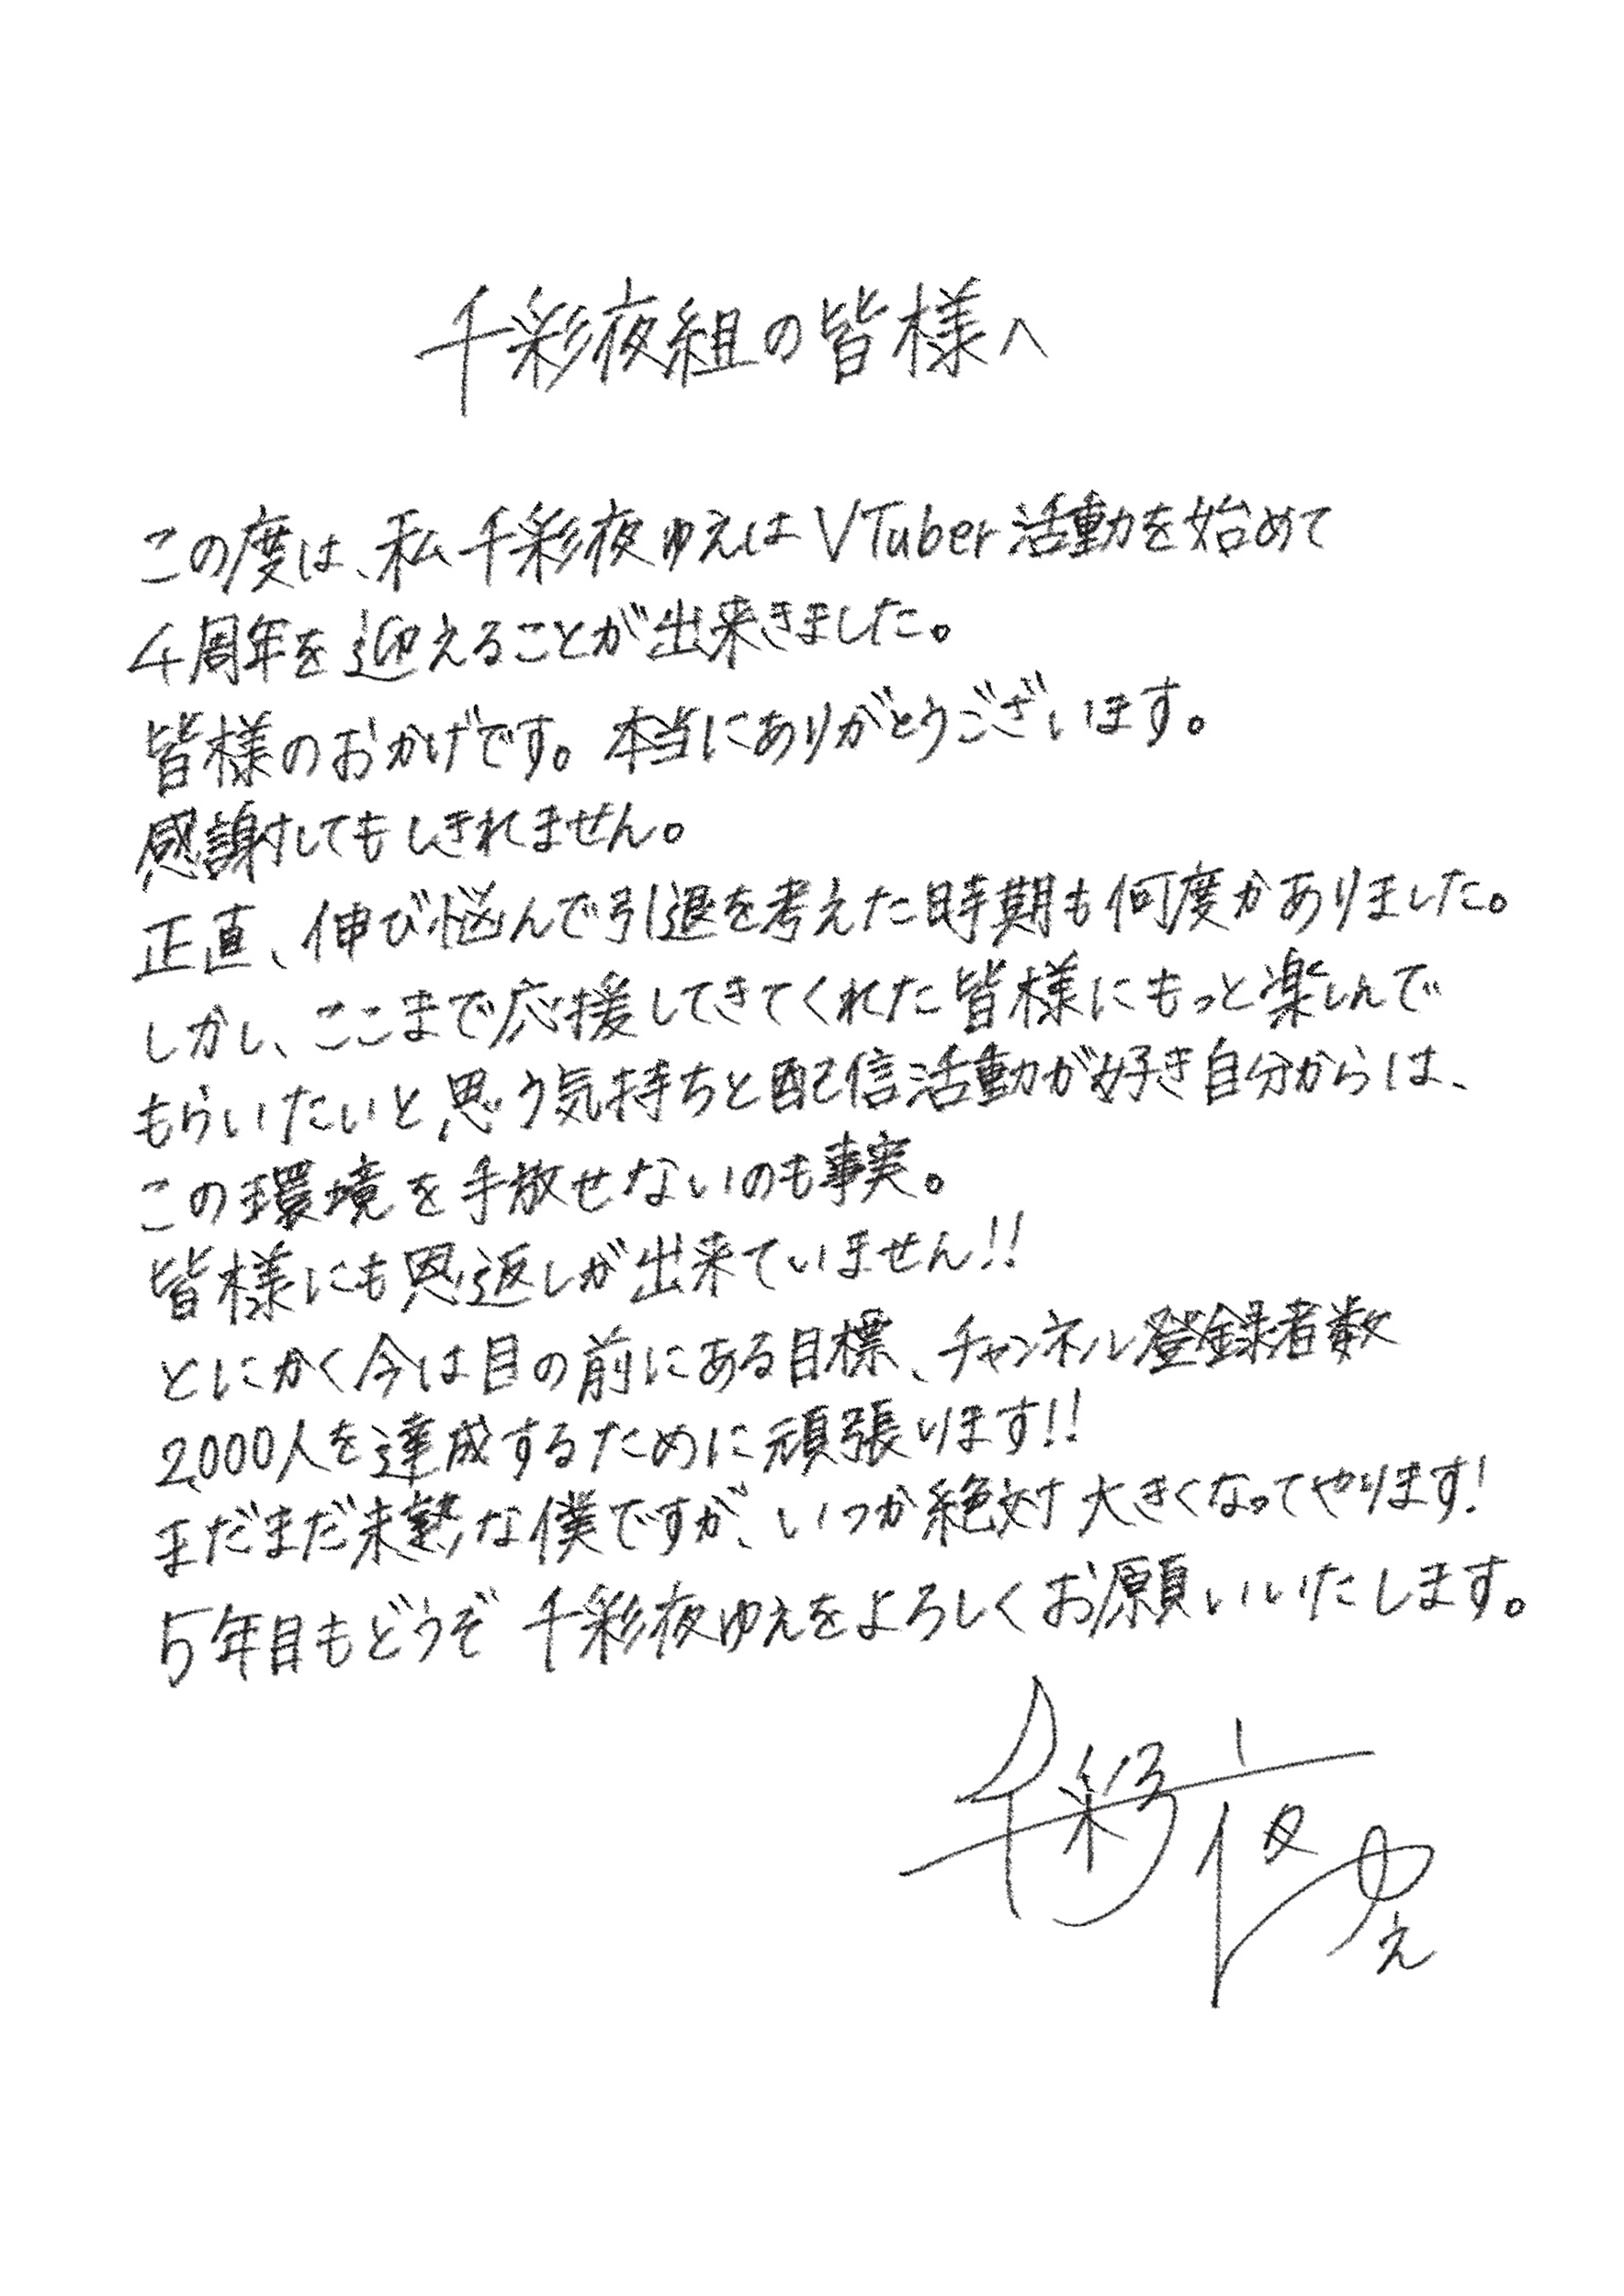 千彩夜組の皆様へ
この度は、私千彩夜ゆえはVTuber活動を始めて
4周年を迎えることが出来きました。
皆様のおかげです。本当にありがとうございます。
感謝してもしきれません。
正直、伸び悩んで引退を考えた時期も何度かありました。
しかし、ここまで応援してきてくれた皆様にもっと楽しんで
もらいたいと思う気持ちと配信活動が好き自分からは、
この環境を手放せないのも事実。
皆様にも恩返しが出来ていません!!
とにかく今は目の前にある目標、チャンネル登録者数
2,000人を達成するために頑張ります!!
まだまだ未熟な僕ですが、いつか絶対大きくなってやります!
5年目もどうぞ千彩夜ゆえをよろしくお願いいたします。
千彩夜ゆえ